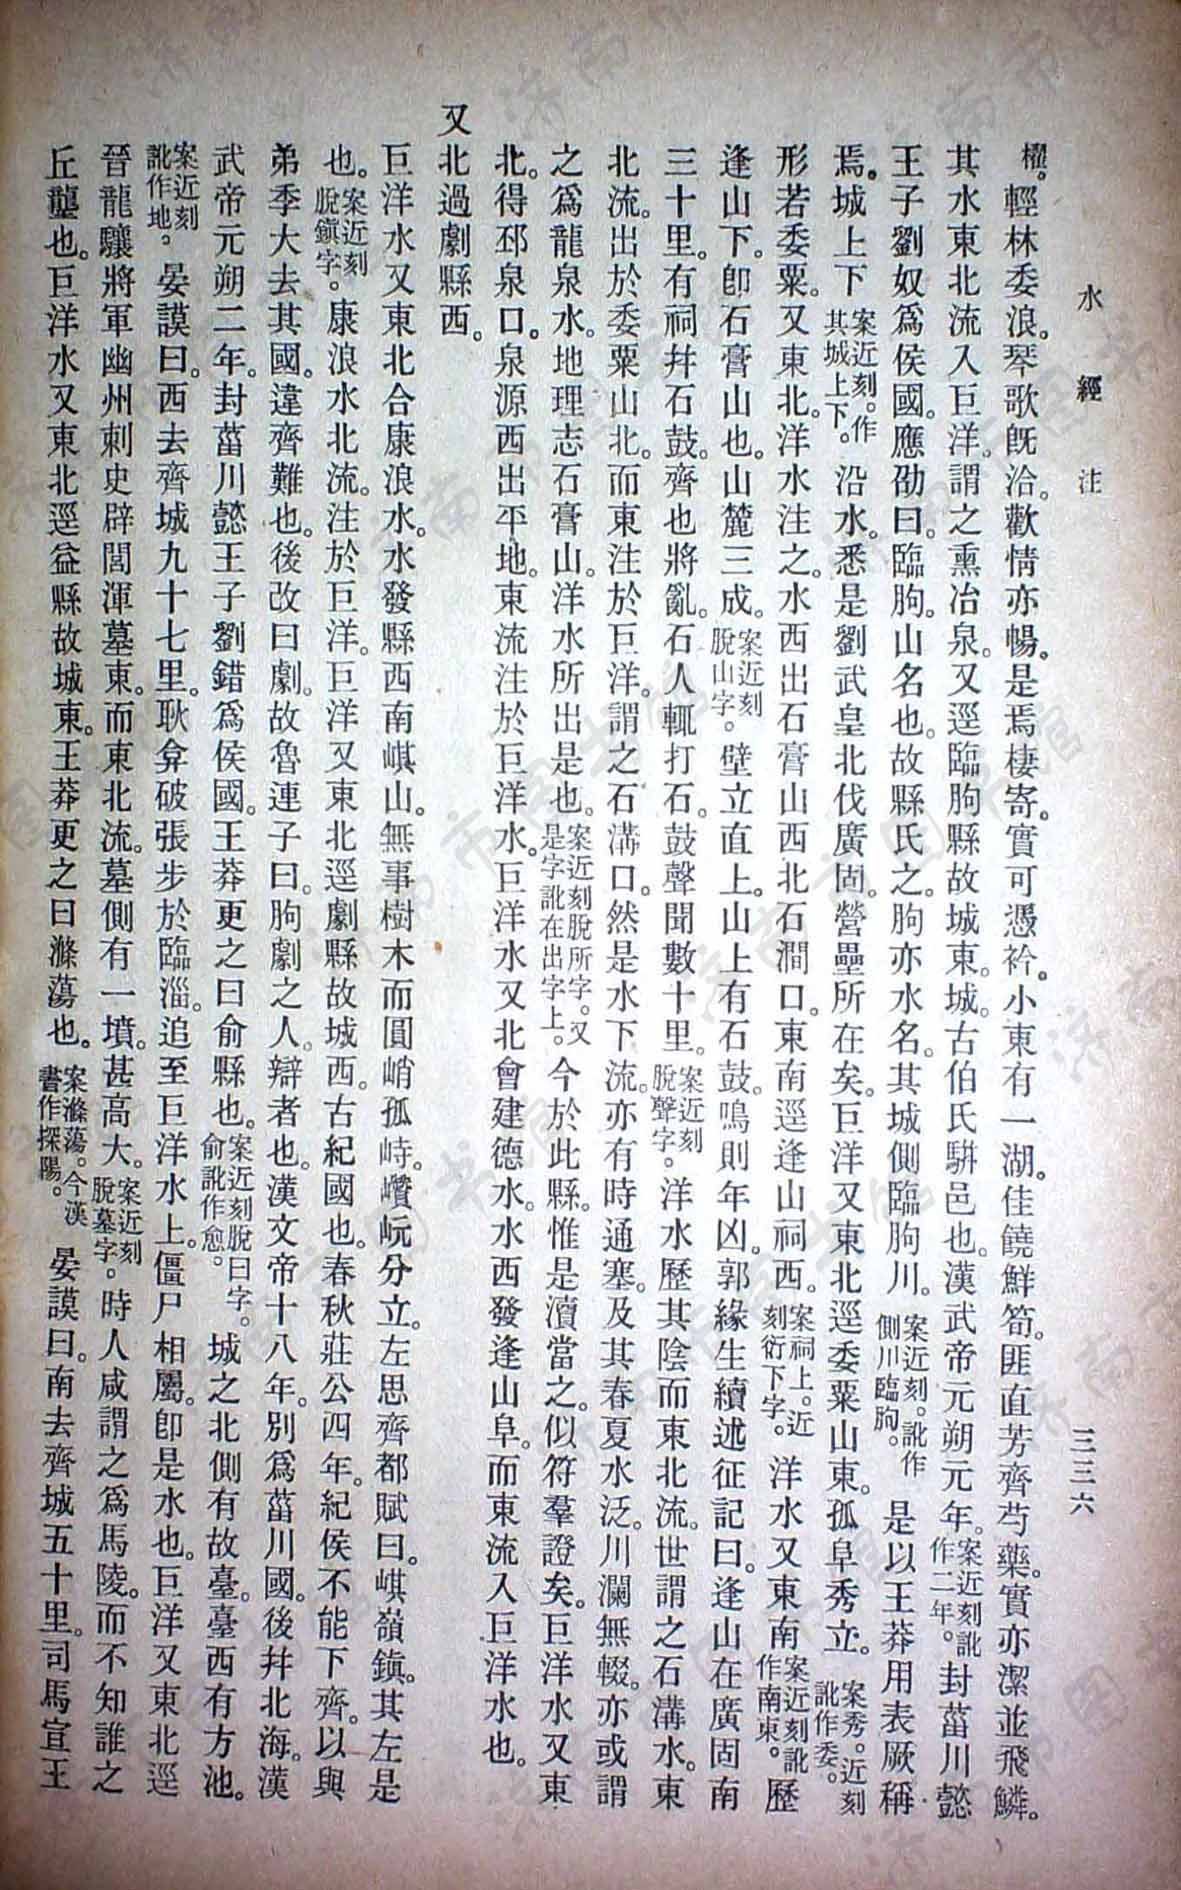 水經注
三三六
櫂。輕林委浪。琴歌旣洽。歡情亦暢。是焉棲寄。實可憑衿。小東有一湖。佳饒鮮筍。匪直芳齊芍藥。實亦潔並飛鱗。
其水東北流入巨洋。謂之熏冶泉。又逕臨朐縣故城東。城。古伯氏駢邑也。漢武帝元朔元年。案近刻訛作二年。封菑川懿
王子劉奴爲侯國。應劭曰。臨朐。山名也。故縣氏之。朐亦水名。其城側臨朐川。案近刻。訛作側川臨朐。是以王莽用表厥稱
焉。城上下案近刻。作其城上下。沿水。悉是劉武皇北伐廣固。營壘所在矣。巨洋又東北逕委粟山東。孤阜秀立。案秀。近刻訛作委。
形若委粟。又東北。洋水注之。水西出石膏山西北石澗口。東南逕逢山祠西。案祠上。近刻衍下字。洋水又東南案近刻訛作南東。歷
逢山下。卽石膏山也。山麓三成。案近刻脫山字。壁立直上。山上有石鼓。鳴則年凶。郭緣生續述征記曰。逢山在廣固南
三十里。有祠幷石鼓。齊也將亂。石人輒打石。鼓聲聞數十里。案近刻脫聲字。洋水歷其陰而東北流。世謂之石溝水。東
北流。出於委粟山北。而東注於巨洋。謂之石溝口。然是水下流。亦有時通塞。及其春夏水泛。川瀾無輟。亦或謂
之爲龍泉水。地理志石膏山。洋水所出是也。案近刻脫所字。又是字訛在出字上。今於此縣。惟是瀆當之。似符羣證矣。巨洋水又東
北。得邳泉口。泉源西出平地。東流注於巨洋水。巨洋水又北會建德水。水西發逢山阜。而東流入巨洋水也。
又北過劇縣西。
巨洋水又東北合康浪水。水發縣西南嵫山。無事樹木而圓峭孤峙。巑岏分立。左思齊都賦曰。嵫嶺鎮。其左是
也。案近刻脫鎮字。康浪水北流。注於巨洋。巨洋又東北逕劇縣故城西。古紀國也。春秋莊公四年。紀侯不能下齊。以與
弟季大去其國。違齊難也。後改曰劇。故魯連子曰。朐劇之人。辯者也。漢文帝十八年。別爲菑川國。後幷北海。漢
武帝元朔二年。封菑川懿王子劉錯爲侯國。王莽更之曰俞縣也。案近刻脫曰字。俞訛作愈。城之北側有故臺。臺西有方池。
案近刻訛作地。晏謨曰。西去齊城九十七里。耿弇破張步於臨淄。追至巨洋水上。僵尸相屬。卽是水也。巨洋又東北逕
晉龍驤將軍幽州刺史辟閭渾墓東。而東北流。墓側有一墳。甚高大。案近刻脫墓字。時人咸謂之爲馬陵。而不知誰之
丘壟也。巨洋水又東北逕益縣故城東。王莽更之曰滌蕩也。案滌蕩。今漢書作探陽。晏謨曰。南去齊城五十里。司馬宣王